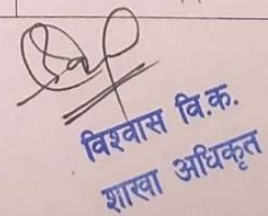 विश्वास वि.क.
शाखा अधिकृत